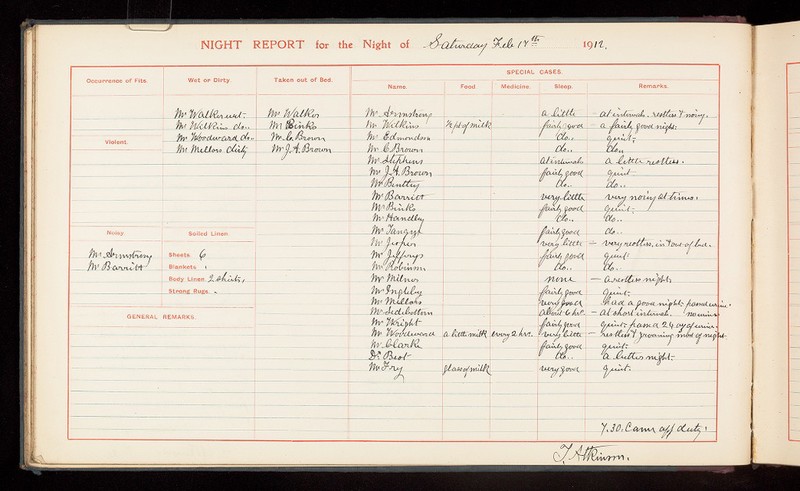 NIGHT REPORT for the Night of Saturday Feb 17th 1912.
SPECIAL CASES.
Occurrence of Fits. Wet or Dirty. Taken out of Bed. Name. Food. Medicine. Sleep. Remarks.
Mr Walker wet. Mr Walker Mr Armstrong a little at intervals, restless & noisy.
Mr Watkins do.. Mr Binks Mr Watkins ½ pt of milk fairly good a fairly good night.
Violent. Mr Woodward do.. Mr C. Brown Mr Edmondson do.. quiet.
Mr Mellors dirty Mr J.A. Brown Mr C Brown do.. do..
Mr Stephens at intervals a little restless.
Mr J.A. Brown fairly good quiet
Mr Bentley do.. do..
Mr Barriott very little very noisy at times.
Mr Binks fairly good quiet.
Mr Handley do.. do..
Noisy. Soiled Linen. Mr Tangye fairly good do..
Mr very little – very restless, in & out of bed.
Mr Armstrong Sheets 6 Mr Jeffreys fairly good quiet
Mr Barriott Blankets Mr Robinson do.. do..
Body Linen 2 shirts. Mr Milnes none – a restless night.
Strong Rugs - Mr Ingleby fairly good quiet.
Mr Mellors very good had a good night. passed urine.
GENERAL REMARKS. Mr Sidebottom about 6 hrs. – at short intervals. no urine
Mr Wright fairly good quiet. passed 24 oz of urine.
Mr Woodward a little milk every 2 hrs. very little – restless & groaning most of night.
Mr Clarke fairly good quiet.
Dr Best do.. a better night.
Mr Fry glass of milk very good quiet.
7.30. Came off duty.
T. Atkinson.